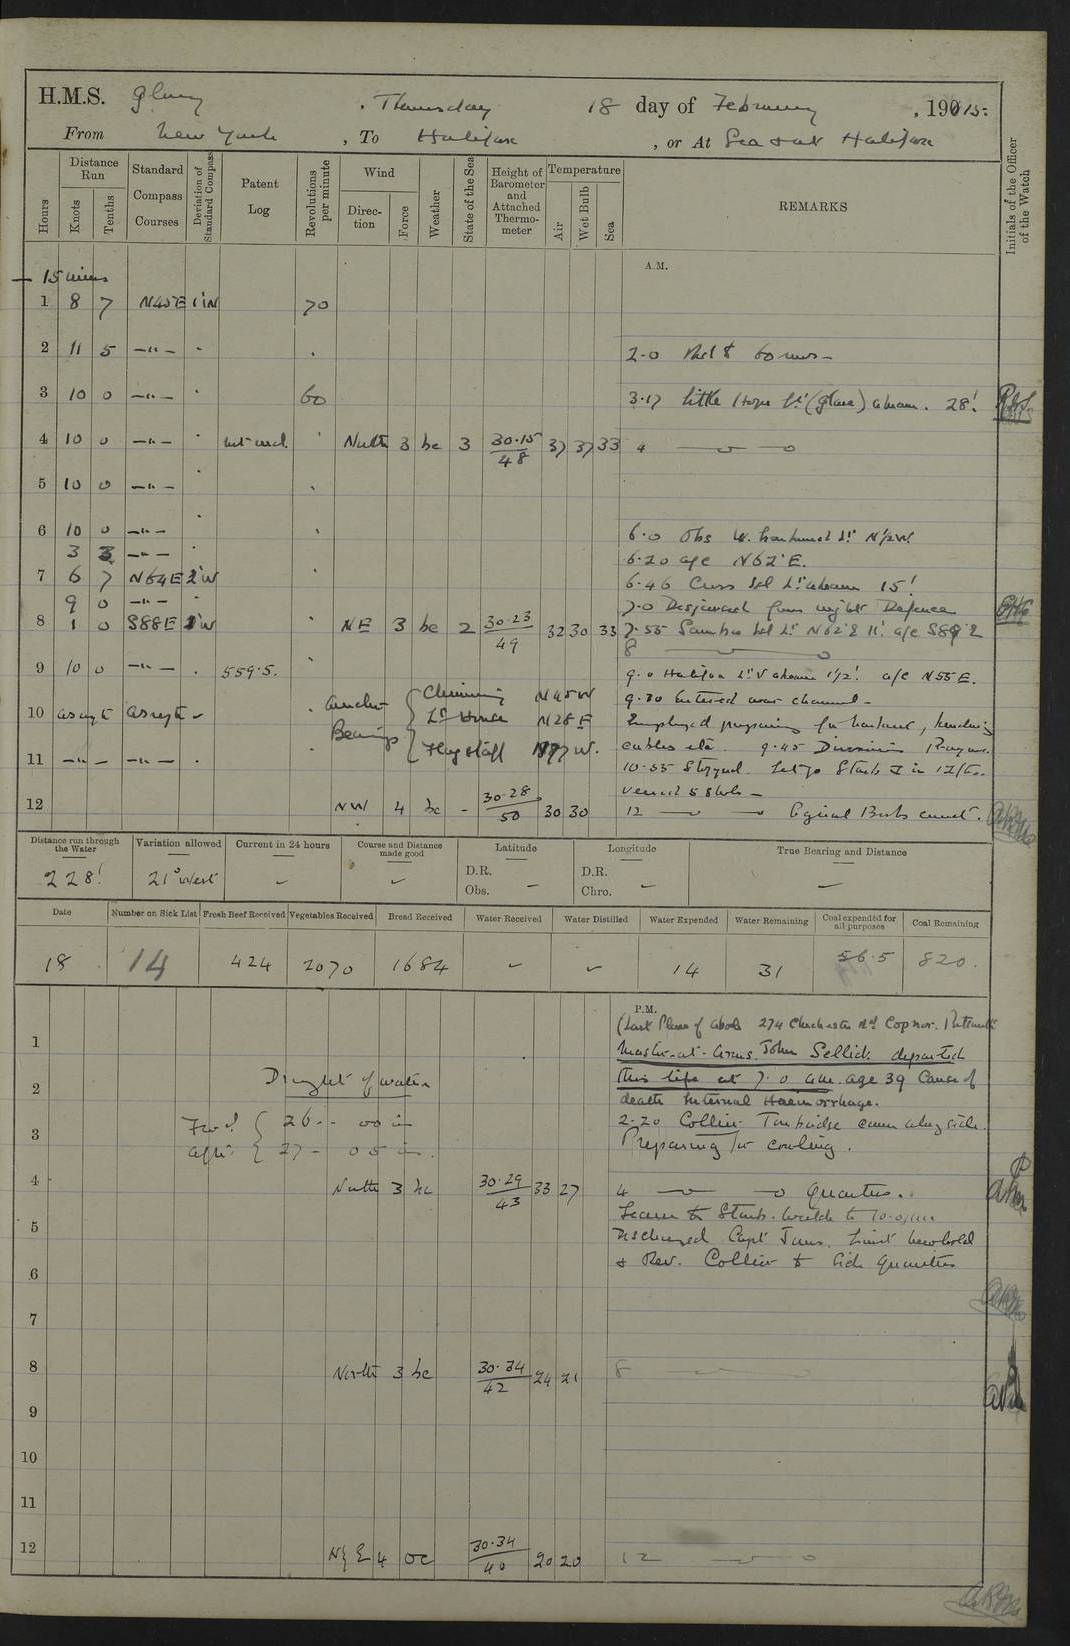 H.M.S. Glory, Thursday 18 day of February, 1915:
From New York, To Halifax, or At Sea & at Halifax
Hours
Distance Run
Knots
Tenths
Standard Compass Courses
Deviation of Standard Compass
Patent Log
Revolutions per minute
Wind
Direction
Force
Weather
State of the Sea
Height of Barometer and Attached Thermometer
Temperature
Air
Wet Bulb
Sea
REMARKS
Initials of the Officer of the Watch
A.M.
15 mins
1 8 7 N45E 1°W 70
2 11 5 —"—
2.0 60 revs —
3 10 0 —"— 60
3.17 Little Hope Lt (glare) abeam. 28'.
4 10 0 —"— North 3 bc 3 30.15 48 37 37 33
4
5 10 0 —"—
6 10 0 —"—
6.0 Obs N½W.
3 3 —"—
6.20 a/c N62°E.
7 6 7 N64E 2°W
6.46 Cross Isl Lt abeam 15'
9 0 —"—
7.0 Defence
8 1 0 S88E NE 3 bc 2 30.23 49 32 30 33
7.55 Sambro Isl Lt N62°E 11' a/c S89°E
8
9 10 0 —"— 559.5.
9.0 Halifax Lt V abeam 1½' a/c N55E.
9.30 Entered war channel —
10 as reqte as reqte
Anchor Bearings { Chimney N45W
Lt House N28E
Flagstaff N77W.
Employed preparing for harbour,
cables etc. 9.45 Divisions Prayers.
11 —"— —"—
10.55 Stopped. Let go Starbd
12 NW 4 bc - 30.28 50 30 30
12
Distance run through the Water
228'
Variation allowed
21° West
Current in 24 hours
Course and Distance made good
Latitude
D.R.
Obs.
Longitude
D.R.
Chro.
True Bearing and Distance
Date
Number on Sick List
Fresh Beef Received
Vegetables Received
Bread Received
Water Received
Water Distilled
Water Expended
Water Remaining
Coal expended for all purposes
Coal Remaining
18 14 424 2070 1684 14 31 56.5 820.
P.M.
(Last Place of abode 274 Chichester Rd Copnor. Portsmouth
1
Master-at-Arms. John Sellick departed
2
this life at 7.0 am. age 39 Cause of
death Internal Haemorrhage.
Draught of water
Ford { 26 - 00 in
3
2.20 Collier Tunbridge came alongside.
Aft { 27 - 05 in.
Preparing for coaling.
4 North 3 bc 30.29 43 33 27
4 Quarters.
Leave to Starb. watch to 10.0 pm
5
Discharged Capt
6
& Rev. Collier to Sick Quarters
7
8 North 3 bc 30.34 42 24 21
8
9
10
11
12 4 oc 30.34 40 20 20
12